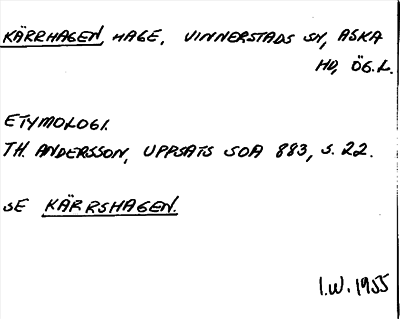 KÄRRHAGEN, HAGE, VINNERSTADS SN, ASKA
HD, ÖG.L.
ETYMOLOGI.
TH. ANDERSSON, UPPSATS SOA 883, S. 22.
SE KÄRRSHAGEN.
I.W. 1955